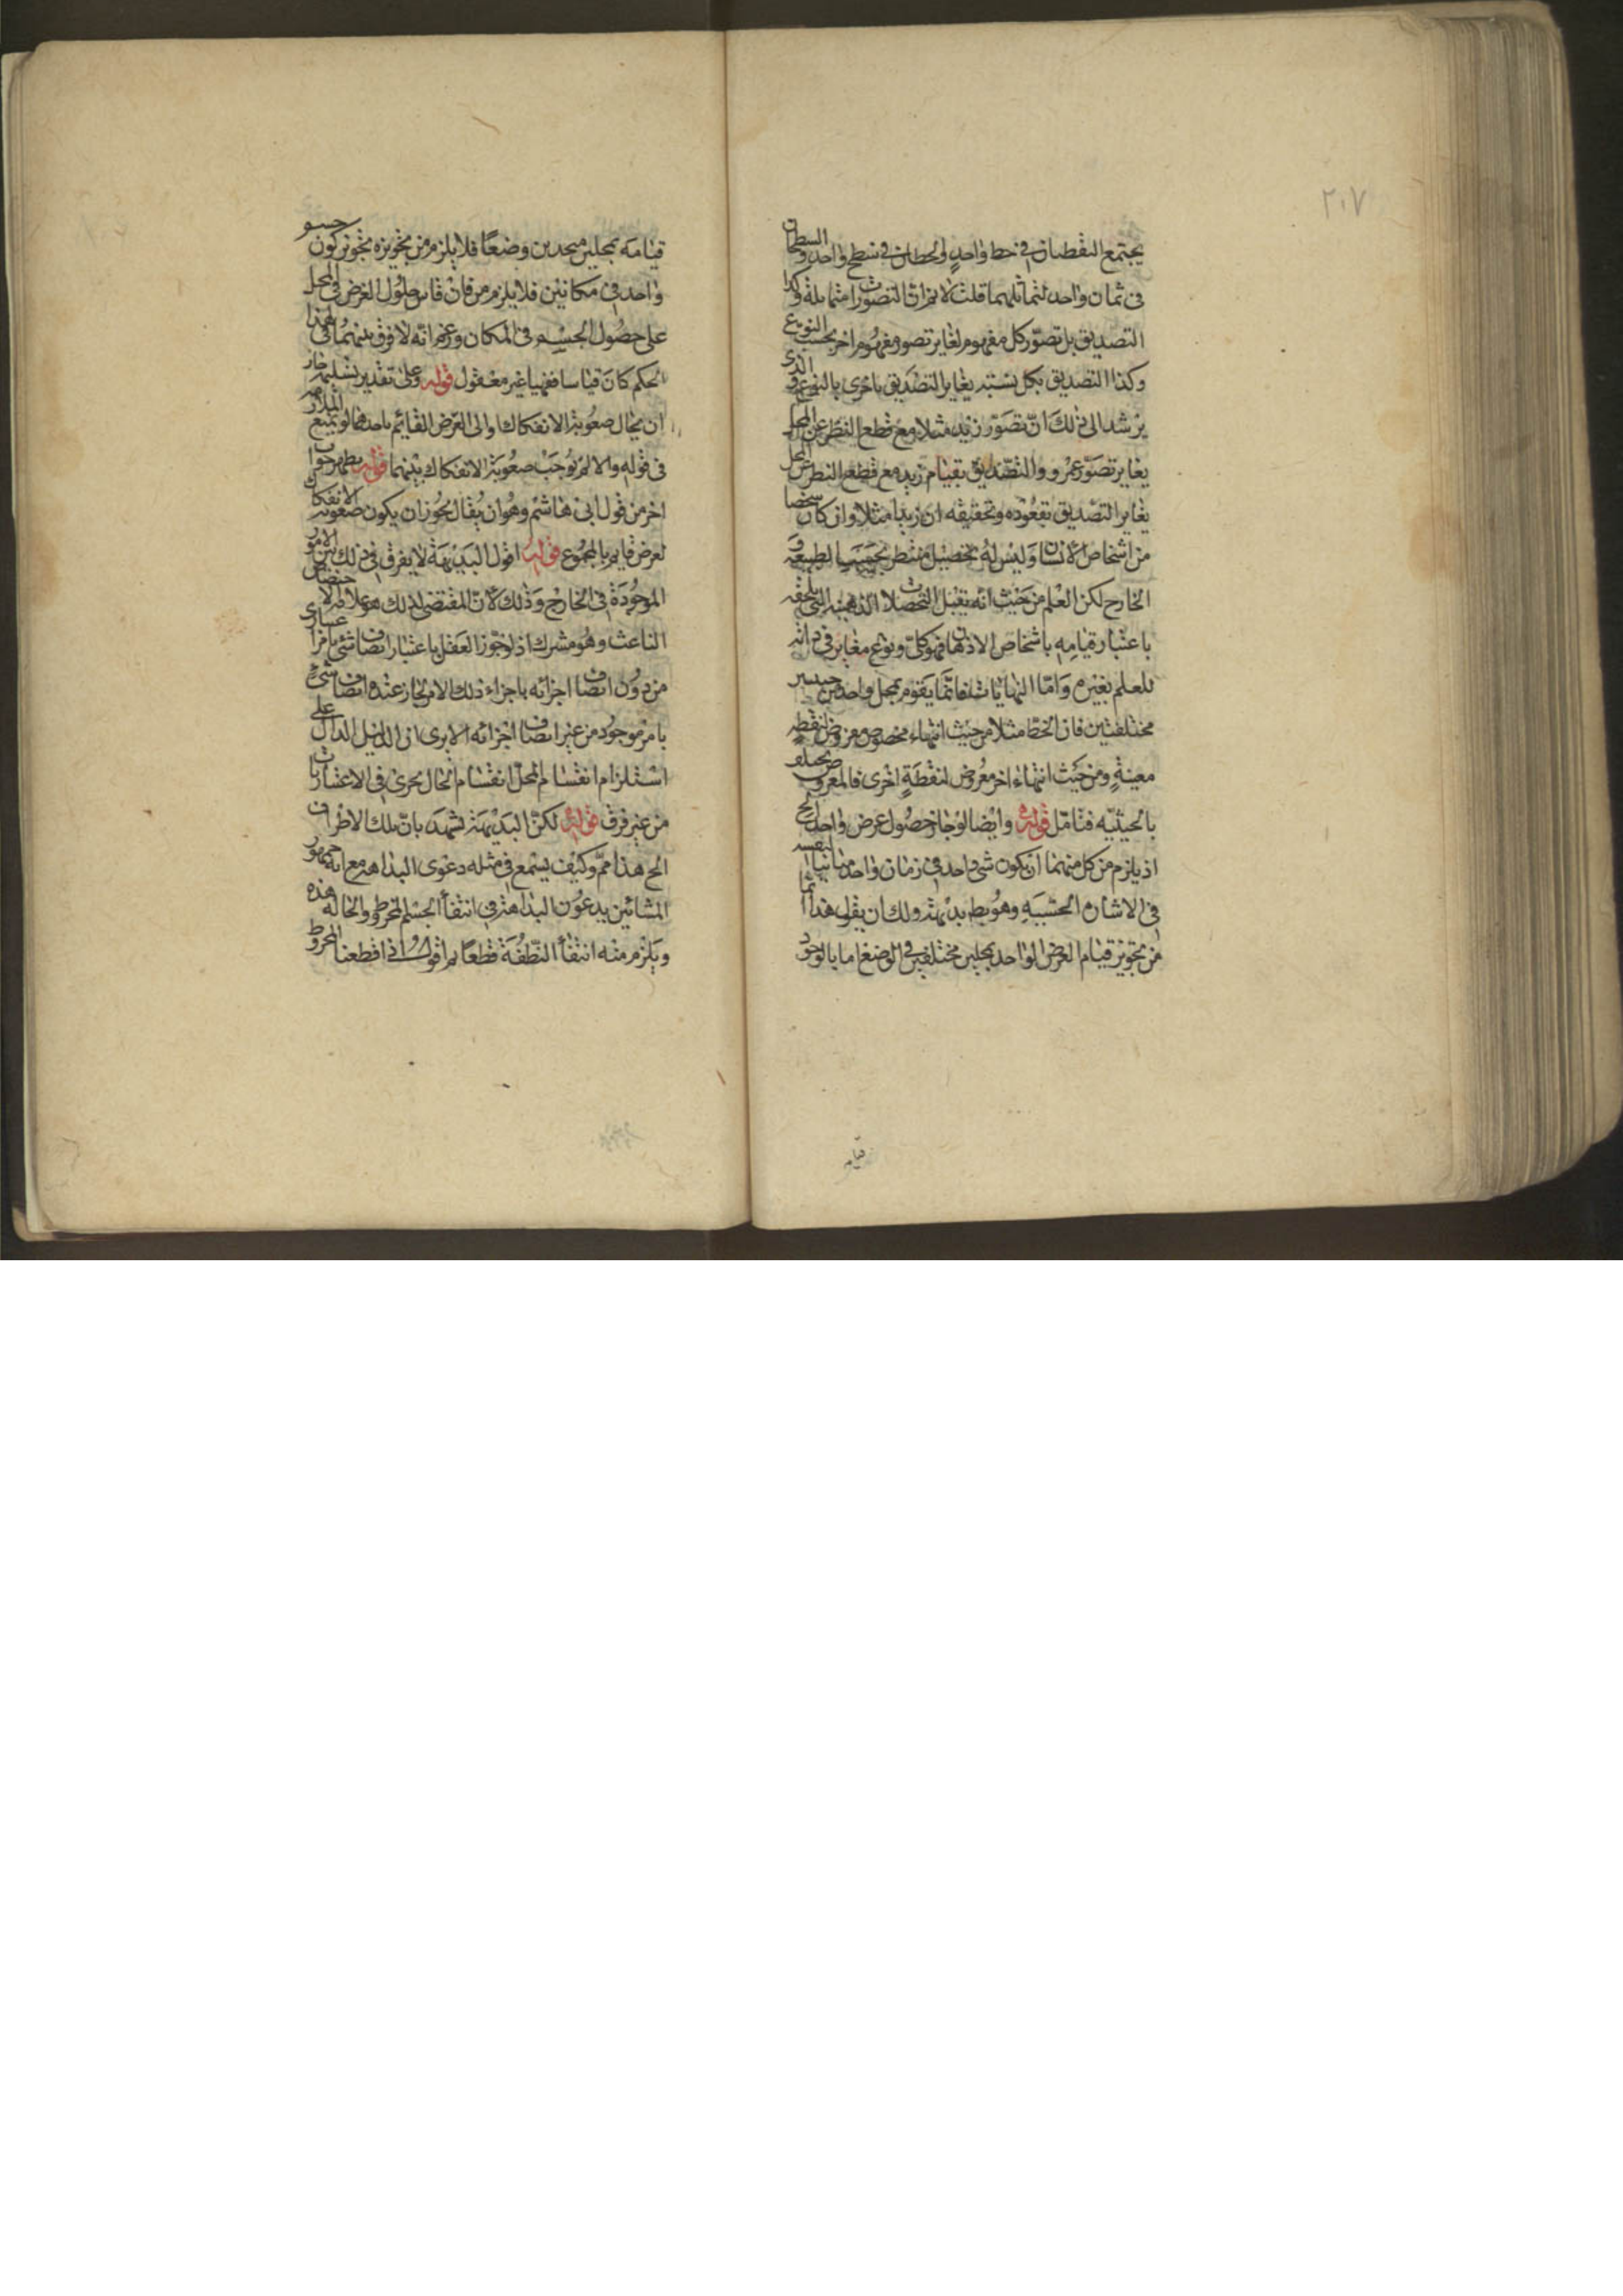 ٢٠٧
يجتمع النقطتان في خط واحد والخطان في سطح واحد والسطحان
في ثمان واحد لتماثلهما قلت لانم ان التصورات متماثلة وكذا
التصديق بل تصور كل مفهوم لغاير تصور مفهوم اخر بحسب النوع
وكذا التصديق بكل نسبته يغاير التصديق باخرى بالنوع والذى
يرشد الى ذلك ان تصور زيد مثلا مع قطع النظر عن المحل
يغاير تصور عمرو والتصديق بقيام زيد مع قطع النظر عن المحل
يغاير التصديق بقعوده وتحقيقه ان زيدا مثلا وان كان شخصا
من اشخاص الانسان وليس له تحصيل منتظر بحسب الطبيعة و
الخارج لكن العلم من حيث انه يقبل التحصلات الذهنية التى تلحقه
باعتبار قيامه باشخاص الاذهان فهو كلى ونوع مغاير فى ذاته
للعلم بغيره واما النهايات فانما يقوم بمحل واحد من حيثيتين
مختلفتين فان الخط مثلا من حيث انتهاء مخصوص معروض لنقطة
معينة ومن حيث انتهاء اخر معروض لنقطة اخرى فالمعروض يختلف
بالحيثيه فتامل قوله وايضا لو جاز حصول عرض واحد الخ
اذ يلزم من كل منهما ان يكون شئ واحد فى زمان واحد مباينا لنفسه
فى الاشارة الحسية وهو بط بديهة ولك ان يقول هذا انما
من تجويز قيام العرض الواحد بمحلين مختلفين فى الوضع اما بالوجود
قيامه
قيامه بمحلين متحدين وضعا فلا يلزم من تجويزه تجويز كون جسم
واحد فى مكانين فلا يلزم من فان قاس حلول العرض فى المحل
على حصول الجسم فى المكان وزعم انه لا فرق بينهما فى هذا
الحكم كان قياسا فقهيا غير معقول قوله وعلى تقدير تسليمه جاز
ان يحال صعوبة الانفكاك والى العرض القائم باحدهما لو يمنع الملازمة
فى قوله والا لم توجب صعوبة الانفكاك بينهما قوله يظهر جواب
اخر من قول ابى هاشم وهو ان يقال يجوز ان يكون صعوبة الانفكاك
لعرض قايم بالمجموع قوله اقول البديهة لا يفرق فى ذلك بين الامور
الموجودة فى الخارج وذلك لان المقتضى لذلك هو علاقة الاختصاص
الناعت وهو مشترك اذ لو جوز العقل باعتبار اتصاف شئ بامر اعتبارى
من دون اتصاف اجزائه باجزاء ذلك الامر لجاز عنده اتصاف شئ
بامر موجود من غير اتصاف اجزائه الا يرى ان الدليل الدال على
استلزام انقسام المحل انقسام الحال يجرى فى الاعتباريات
من غير فرق قوله لكن البديهة تشهد بان تلك الاطراف
الخ هذا مم وكيف يسمع فى مثله دعوى البداهة مع ان جمهور
المشائين يدعون البداهة فى انتفاء الجسم المخروط والحالة هذه
ويلزم منه انتفاء النقطة قطعا ثم اقول اذا قطعنا المخروط